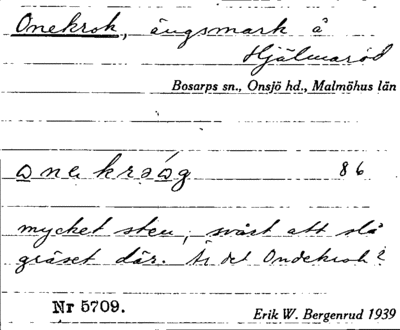 Onekrok, ängsmark å
Hjälmaröd
Bosarps sn., Onsjö hd., Malmöhus län
86
mycket sten, svårt att slå
gräset där. Är det Ondekrok?
Nr 5709.
Erik W. Bergenrud 1939